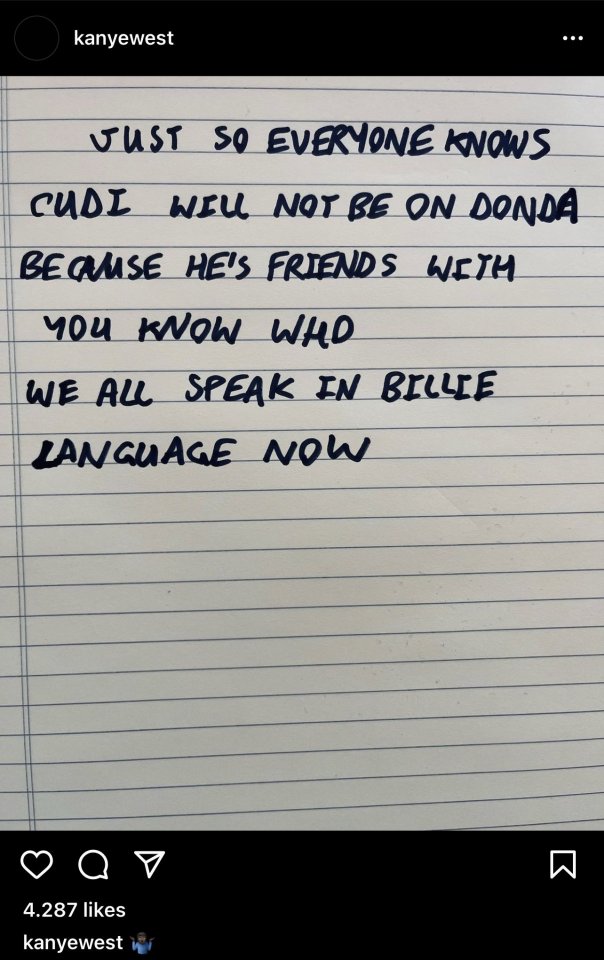 kanyewest
JUST SO EVERYONE KNOWS
CUDI WILL NOT BE ON DONDA
BECAUSE HE'S FRIENDS WITH
YOU KNOW WHO
WE ALL SPEAK IN BILLIE
LANGUAGE NOW
4.287 likes
kanyewest 🤷🏿‍♂️